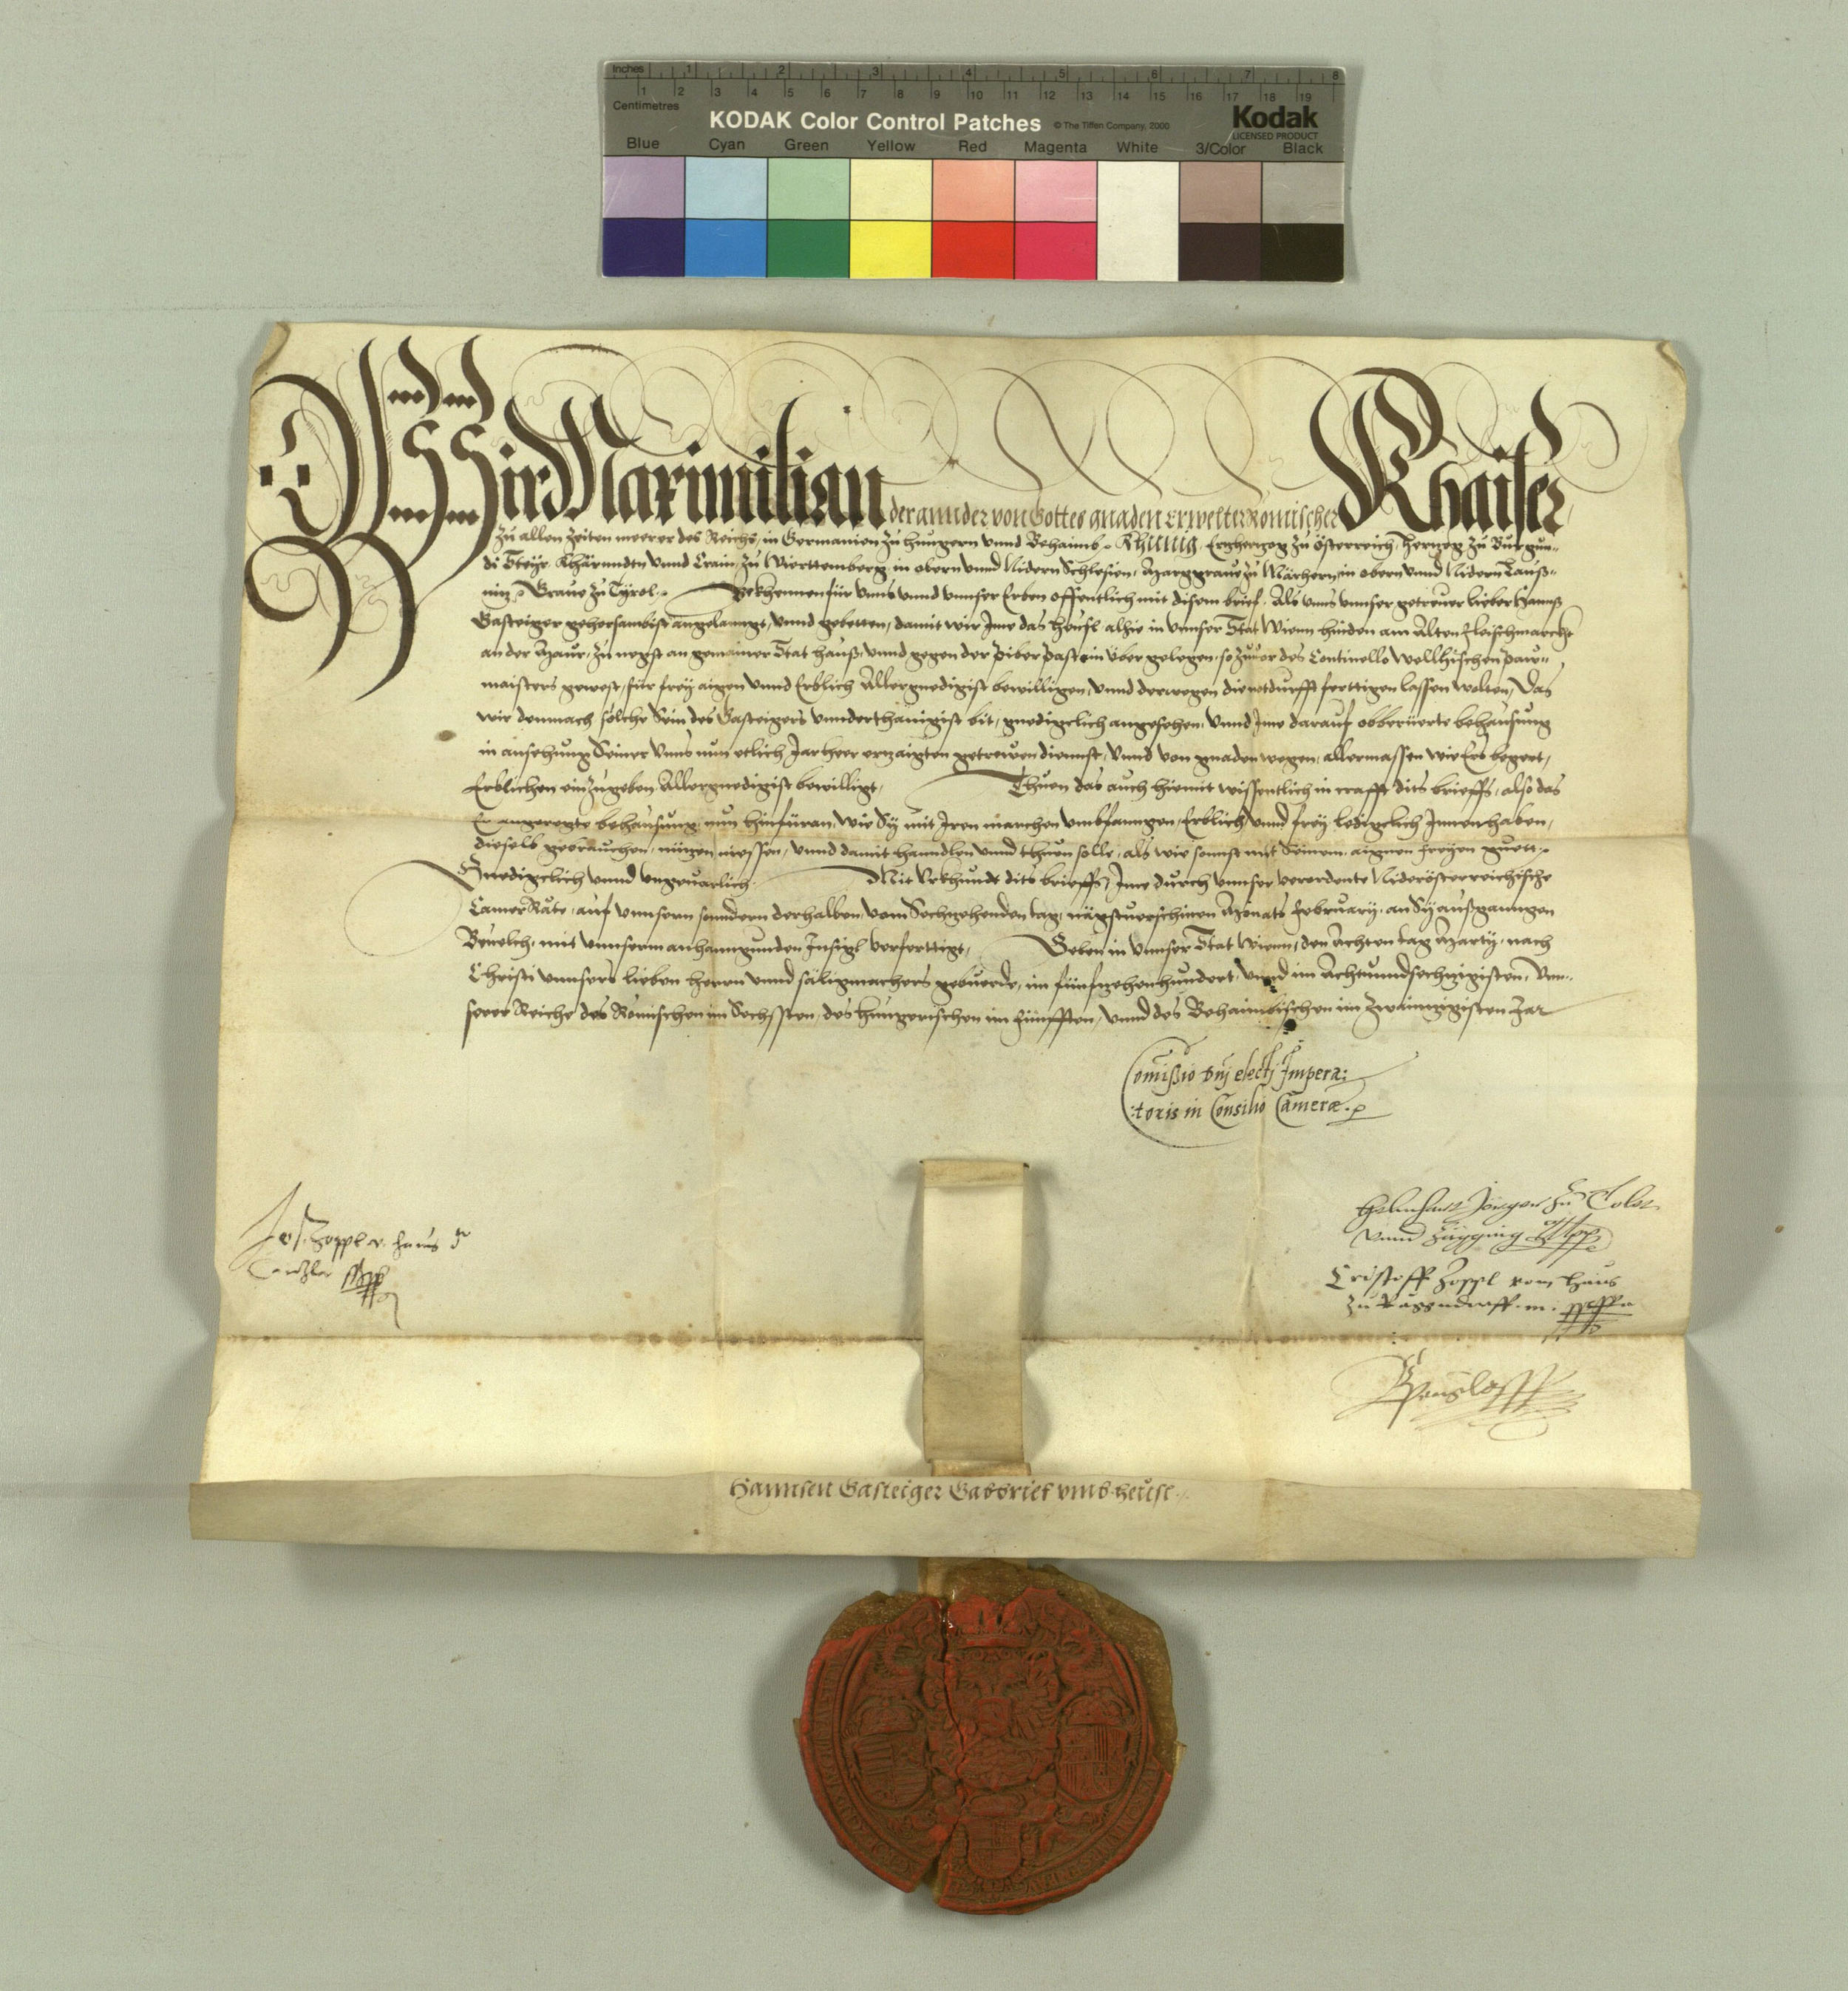 Inches 1 2 3 4 5 6 7 8
Centimetres 1 2 3 4 5 6 7 8 9 10 11 12 13 14 15 16 17 18 19
KODAK Color Control Patches © The Tiffen Company, 2000 Kodak
LICENSED PRODUCT
Blue Cyan Green Yellow Red Magenta White 3/Color Black
Wir Maximilian der annder von Gottes gnaden Erwelter Römischer Khaiser
zu allen Zeiten meerer des Reichs, in Germanien zu hungern vnnd Behaimb Khunig, Ertzhertzog zu österreich, Hertzog zu Burgun-
di Steyr Khärnndten vnnd Crain, zu Wierttemberg, in obern vnnd Nidern Schlesien, Marggraue zu Märhern, in obern vnnd Nidern Lauß-
nitz Graue zu Tyrol. Bekhennen für vnns vnnd vnnser Erben offentlich mit disem brief, Als vnns vnnser getreuer lieber Hanns
Gasteiger gehorsambist angelanngt, vnnd gebetten, damit wir Ime das heusl alhie in vnnser Stat Wienn hinden am Alten fleischmarckt
an der Maur, zu negst an gemainer Stat hauß, vnnd gegen der Piber Pastein über gelegen, so zuuor des Continello Wellhischen paw-
maisters gewest, für frey aigen vnnd Erblich Allergnedigist bewilligen, vnnd derwegen die notdurfft ferttigen lassen wolten, Das
wir demnach solche Sein des Gasteigers vnnderthänigist bit, gnedigclich angesehen, vnnd Ime darauf obberüerte behausung
in ansehung Seiner vnns nun etlich Jar heer erzaigten getrewen diennst, vnnd von gnaden wegen, allermassen wie Ers begert,
Erblichen einzugeben Allergnedigist bewilligt, Thuen das auch hiemit wissentlich in crafft dits brieffs, also das
Er angeregte behausung nun hinfüran, wie Sy mit Iren marchen vmbfanngen, Erblich vnnd frey ledigclich Innen haben,
dieselb gebrauchen, nützen niessen, vnnd damit hanndlen vnnd thuen solle, als wie sonnst mit Seinem aignen freyen guett
Gnedigclich vnnd vngeuärlich. Mit Vrkhundt dits brieffs, Ime durch vnnser verordente Niderösterreichische
Camer Räte, auf vnnsern sonndern derhalben, vom Sechzehenden tag, nägstuerschinen Monats February, an Sy außganngen
Beuelch, mit vnnserm anhanngunden Insigl verferttigt, Geben in vnnser Stat Wienn, den Achten tag Marty, nach
Christi vnnsers lieben herren vnnd säligmachers gebuerde, im fünfzehenhundert, vnnd im Achtunndsechzigisten, Vnn-
serer Reiche des Römischen im Sechssten, des hungerischen im fünfften, vnnd des Behaimbischen im Zwaintzigisten Jar
Comissio dnj electj Impera:
:toris in Consilio Cameræ.
Jos. Zoppl v. haus
Canzler
Helmhart Jörger zu Tolet
vnnd Zägging
Cristoff Zoppl vom Haus
Hannsen Gasteiger Gabbrief vmb heusl